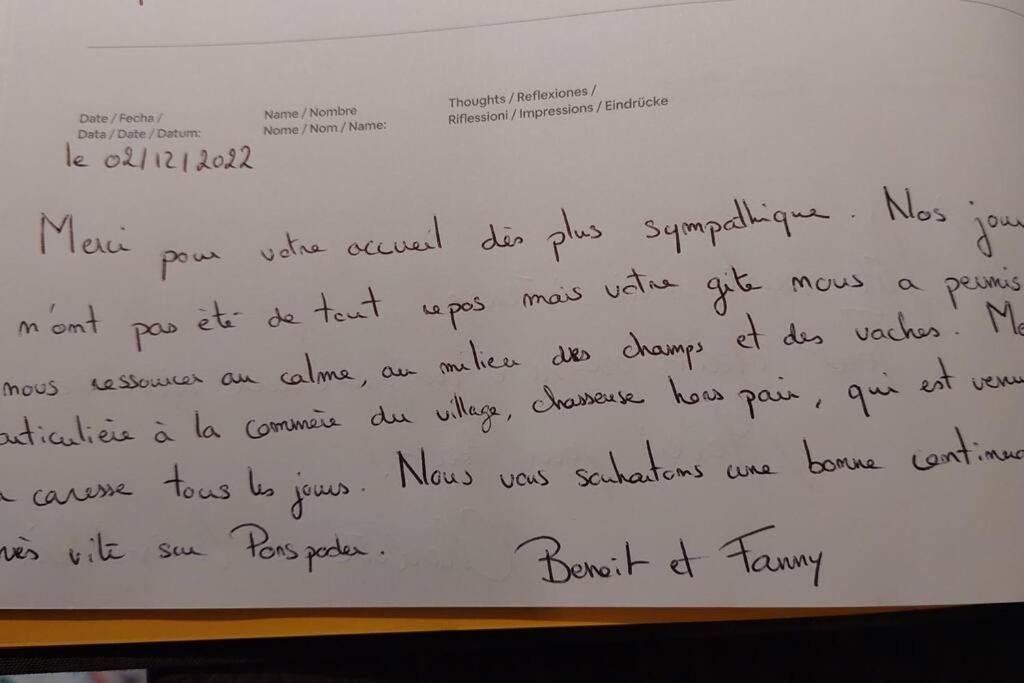 Date / Fecha /
Data / Date / Datum:
Name / Nombre
Nome / Nom / Name:
Thoughts / Reflexiones /
Riflessioni / Impressions / Eindrücke
le 02/12/2022
Merci pour votre accueil des plus sympathique. Nos jour
n'ont pas été de tout repos mais votre gîte nous a permis
nous ressourcer au calme, au milieu des champs et des vaches. Me
articulière à la commère du village, chasseuse hors pair, qui est venu
caresse tous les jours. Nous vous souhaitons une bonne continua
rès vite sur
Benoit et Fanny